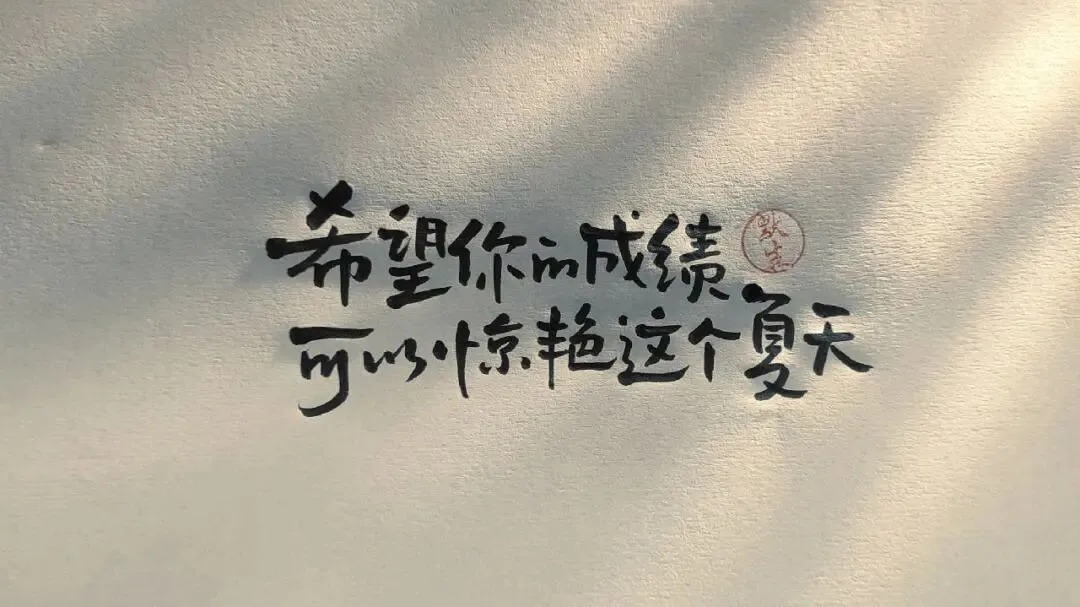 希望你的成绩
可以惊艳这个夏天